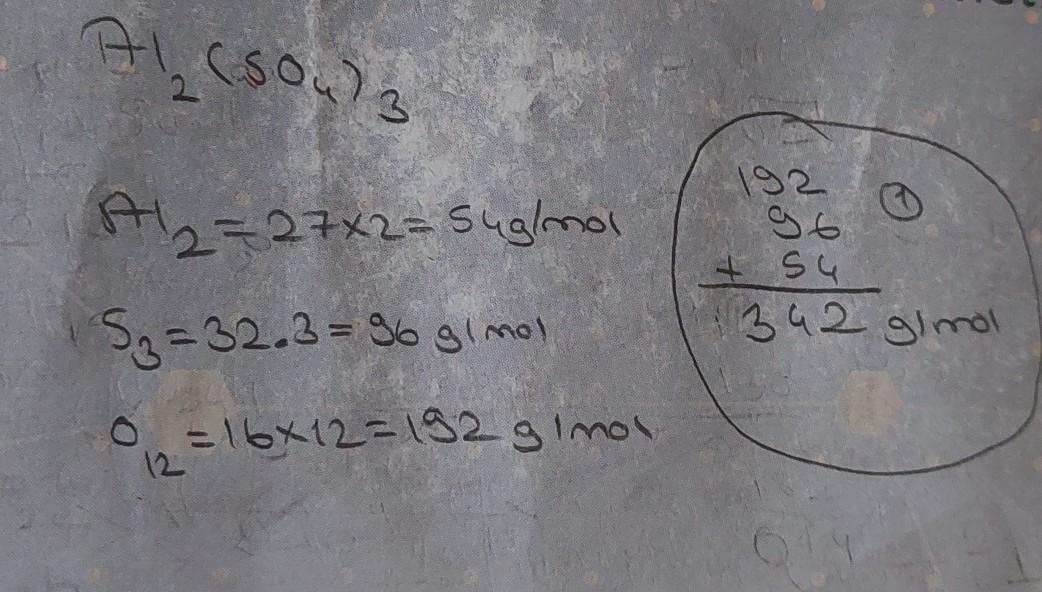 Al₂(SO₄)₃
Al₂ = 27×2 = 54g/mol
S₃ = 32.3 = 96 g/mol
O₁₂ = 16×12 = 192 g/mol
192 ①
96
+ 54
342 g/mol